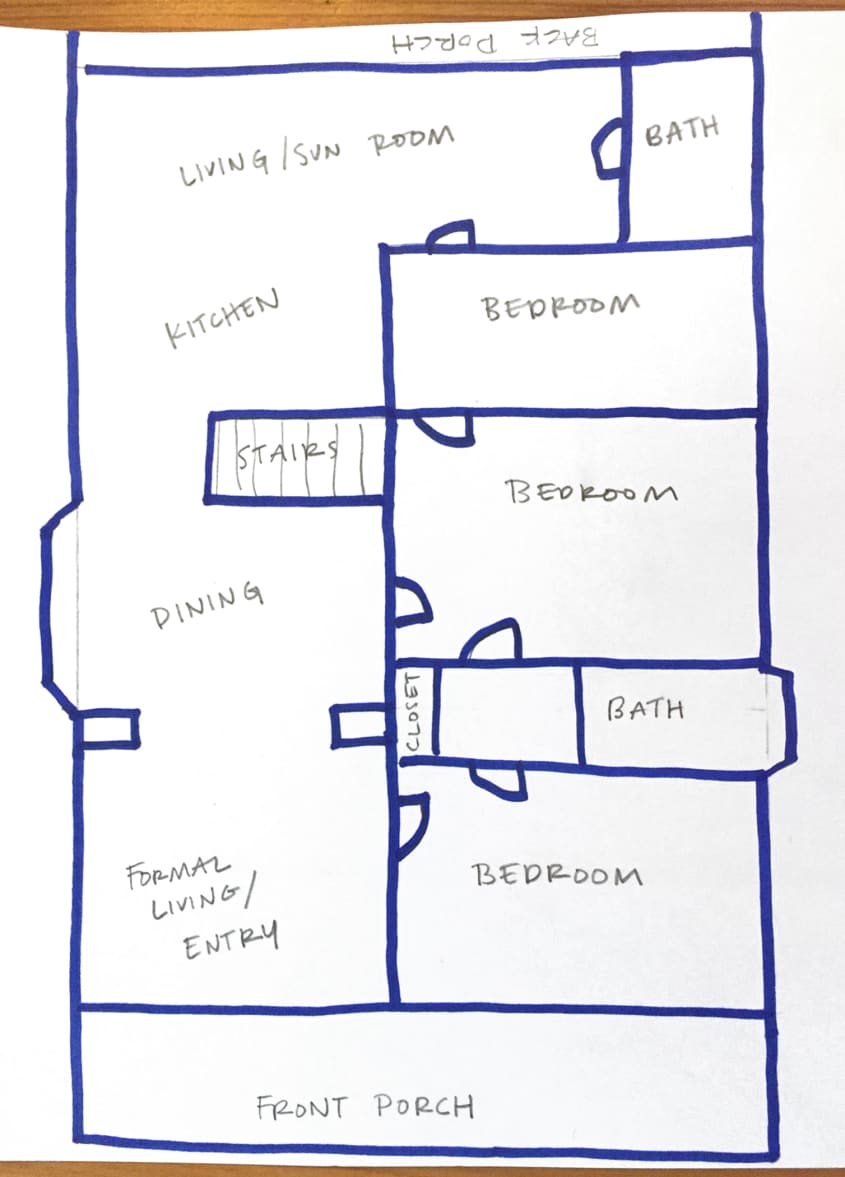 BACK PORCH
LIVING/SUN ROOM
BATH
KITCHEN
BEDROOM
STAIRS
BEDROOM
DINING
CLOSET
BATH
FORMAL
LIVING/
ENTRY
BEDROOM
FRONT PORCH